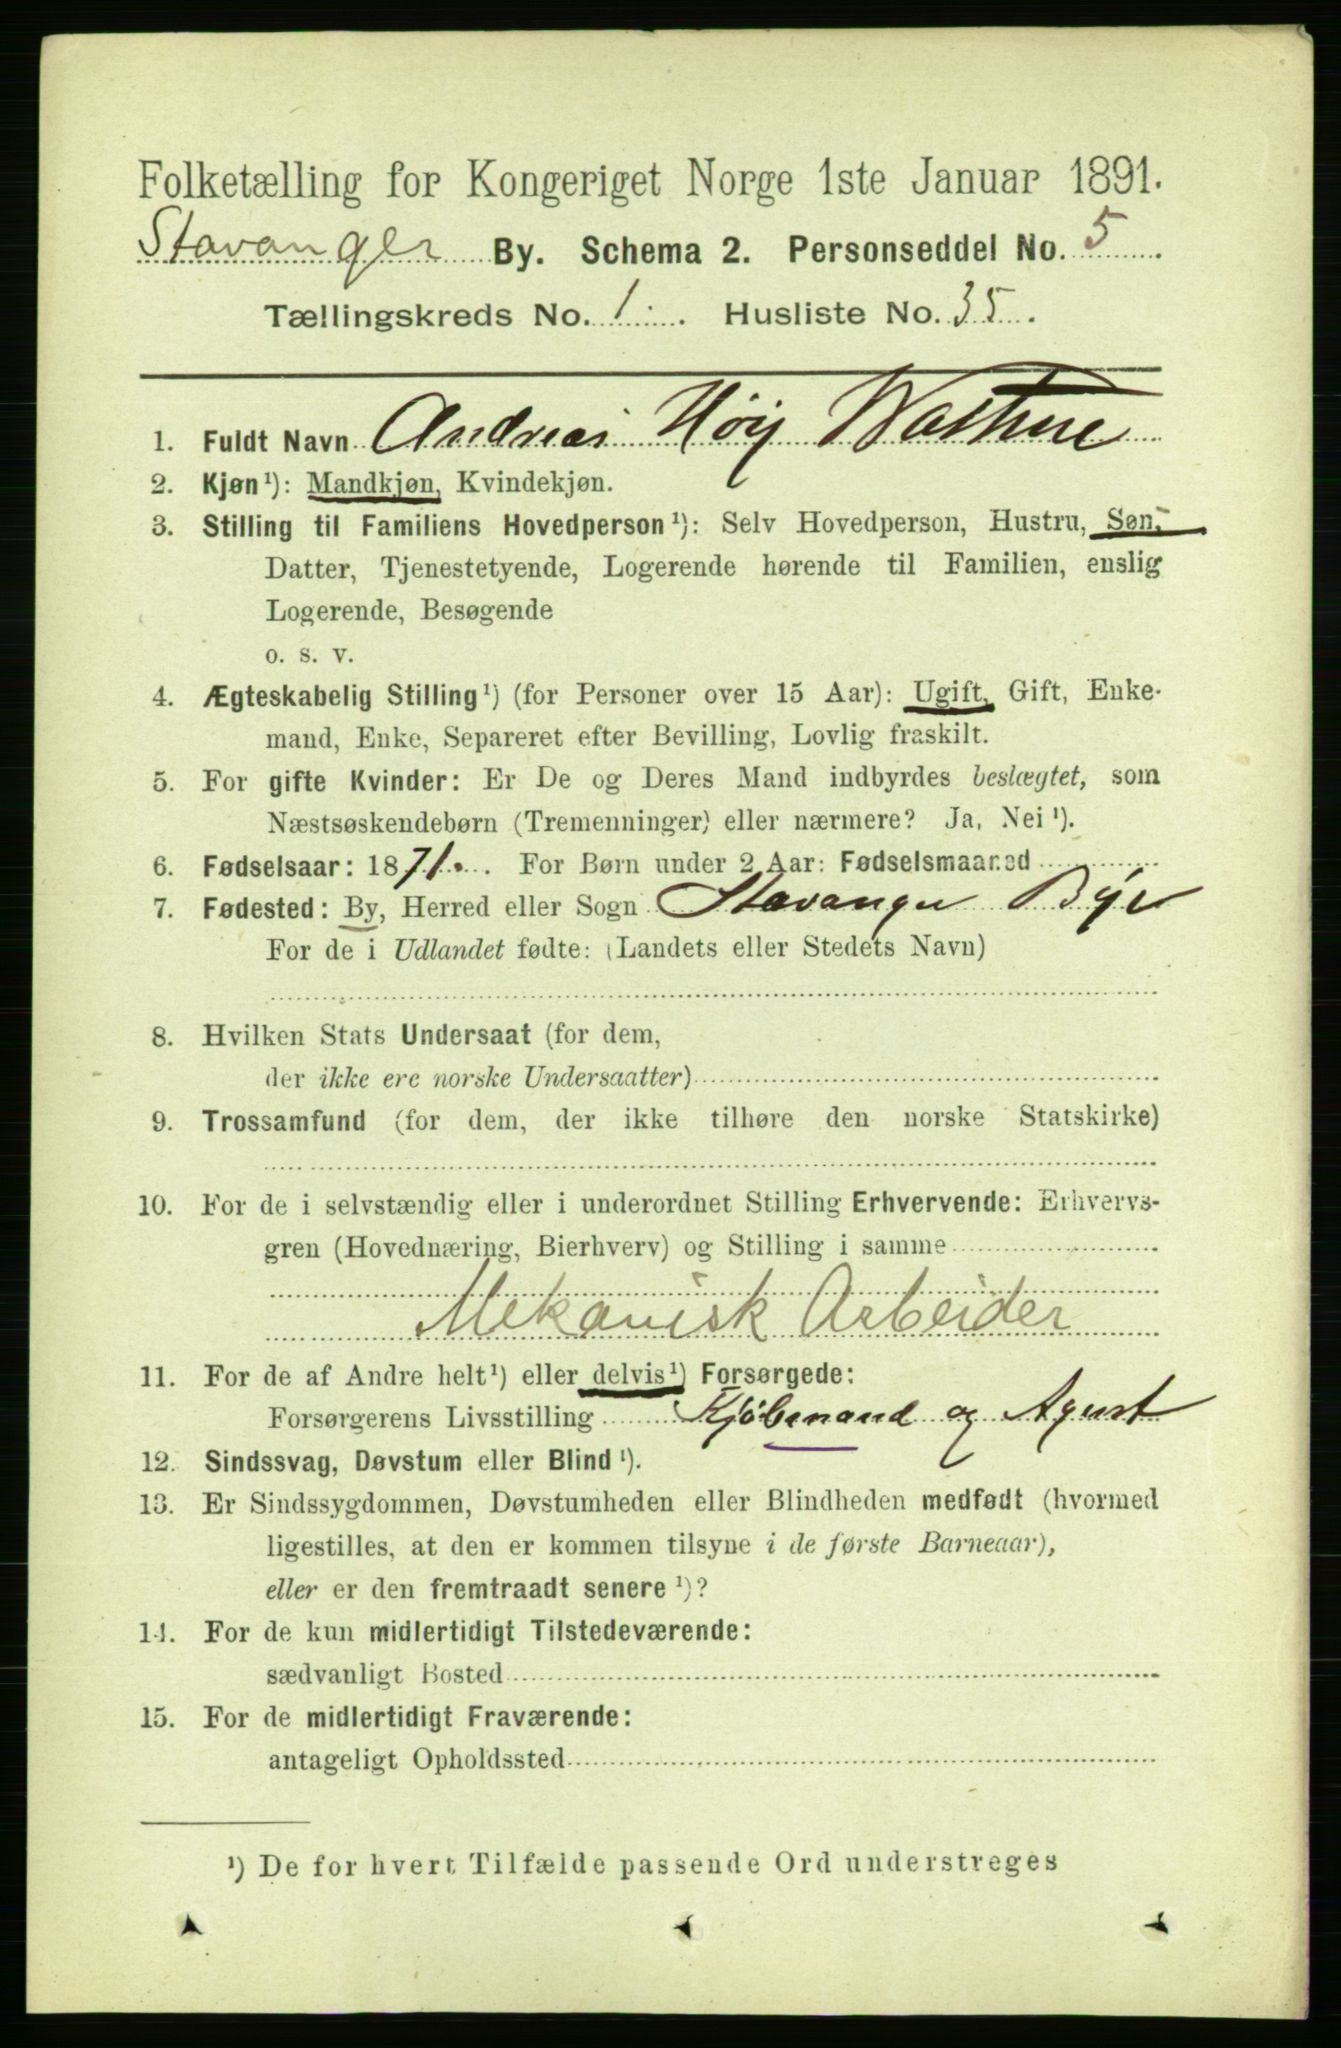 Folketælling for Kongeriget Norge 1ste Januar 1891.
Stavanger By. Schema 2. Personseddel No. 5
Tællingskreds No. 1. Husliste No. 35.
1. Fuldt Navn Andreas Høiy Wathne
2. Kjøn¹): Mandkjøn, Kvindekjøn.
3. Stilling til Familiens Hovedperson¹): Selv Hovedperson, Hustru, Søn,
Datter, Tjenestetyende, Logerende hørende til Familien, enslig
Logerende, Besøgende
o. s. v.
4. Ægteskabelig Stilling¹) (for Personer over 15 Aar): Ugift, Gift, Enke-
mand, Enke, Separeret efter Bevilling, Lovlig fraskilt.
5. For gifte Kvinder: Er De og Deres Mand indbyrdes beslægtet, som
Næstsøskendebørn (Tremenninger) eller nærmere? Ja, Nei¹).
6. Fødselsaar: 1871. For Børn under 2 Aar: Fødselsmaaned
7. Fødested: By, Herred eller Sogn Stavanger By
For de i Udlandet fødte: (Landets eller Stedets Navn)
8. Hvilken Stats Undersaat (for dem,
der ikke ere norske Undersaatter)
9. Trossamfund (for dem, der ikke tilhøre den norske Statskirke)
10. For de i selvstændig eller i underordnet Stilling Erhvervende: Erhvervs-
gren (Hovednæring, Bierhverv) og Stilling i samme
Mekanisk Arbeider
11. For de af Andre helt¹) eller delvis¹) Forsørgede:
Forsørgerens Livsstilling Kjøbmand og Agent
12. Sindssvag, Døvstum eller Blind¹).
13. Er Sindssygdommen, Døvstumheden eller Blindheden medfødt (hvormed
ligestilles, at den er kommen tilsyne i de første Barneaar),
eller er den fremtraadt senere¹)?
14. For de kun midlertidigt Tilstedeværende:
sædvanligt Bosted
15. For de midlertidigt Fraværende:
antageligt Opholdssted
¹) De for hvert Tilfælde passende Ord understreges